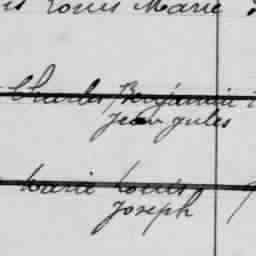 Louis Marie
Charles Benjamin
Jean Jules
Marie Louis
Joseph